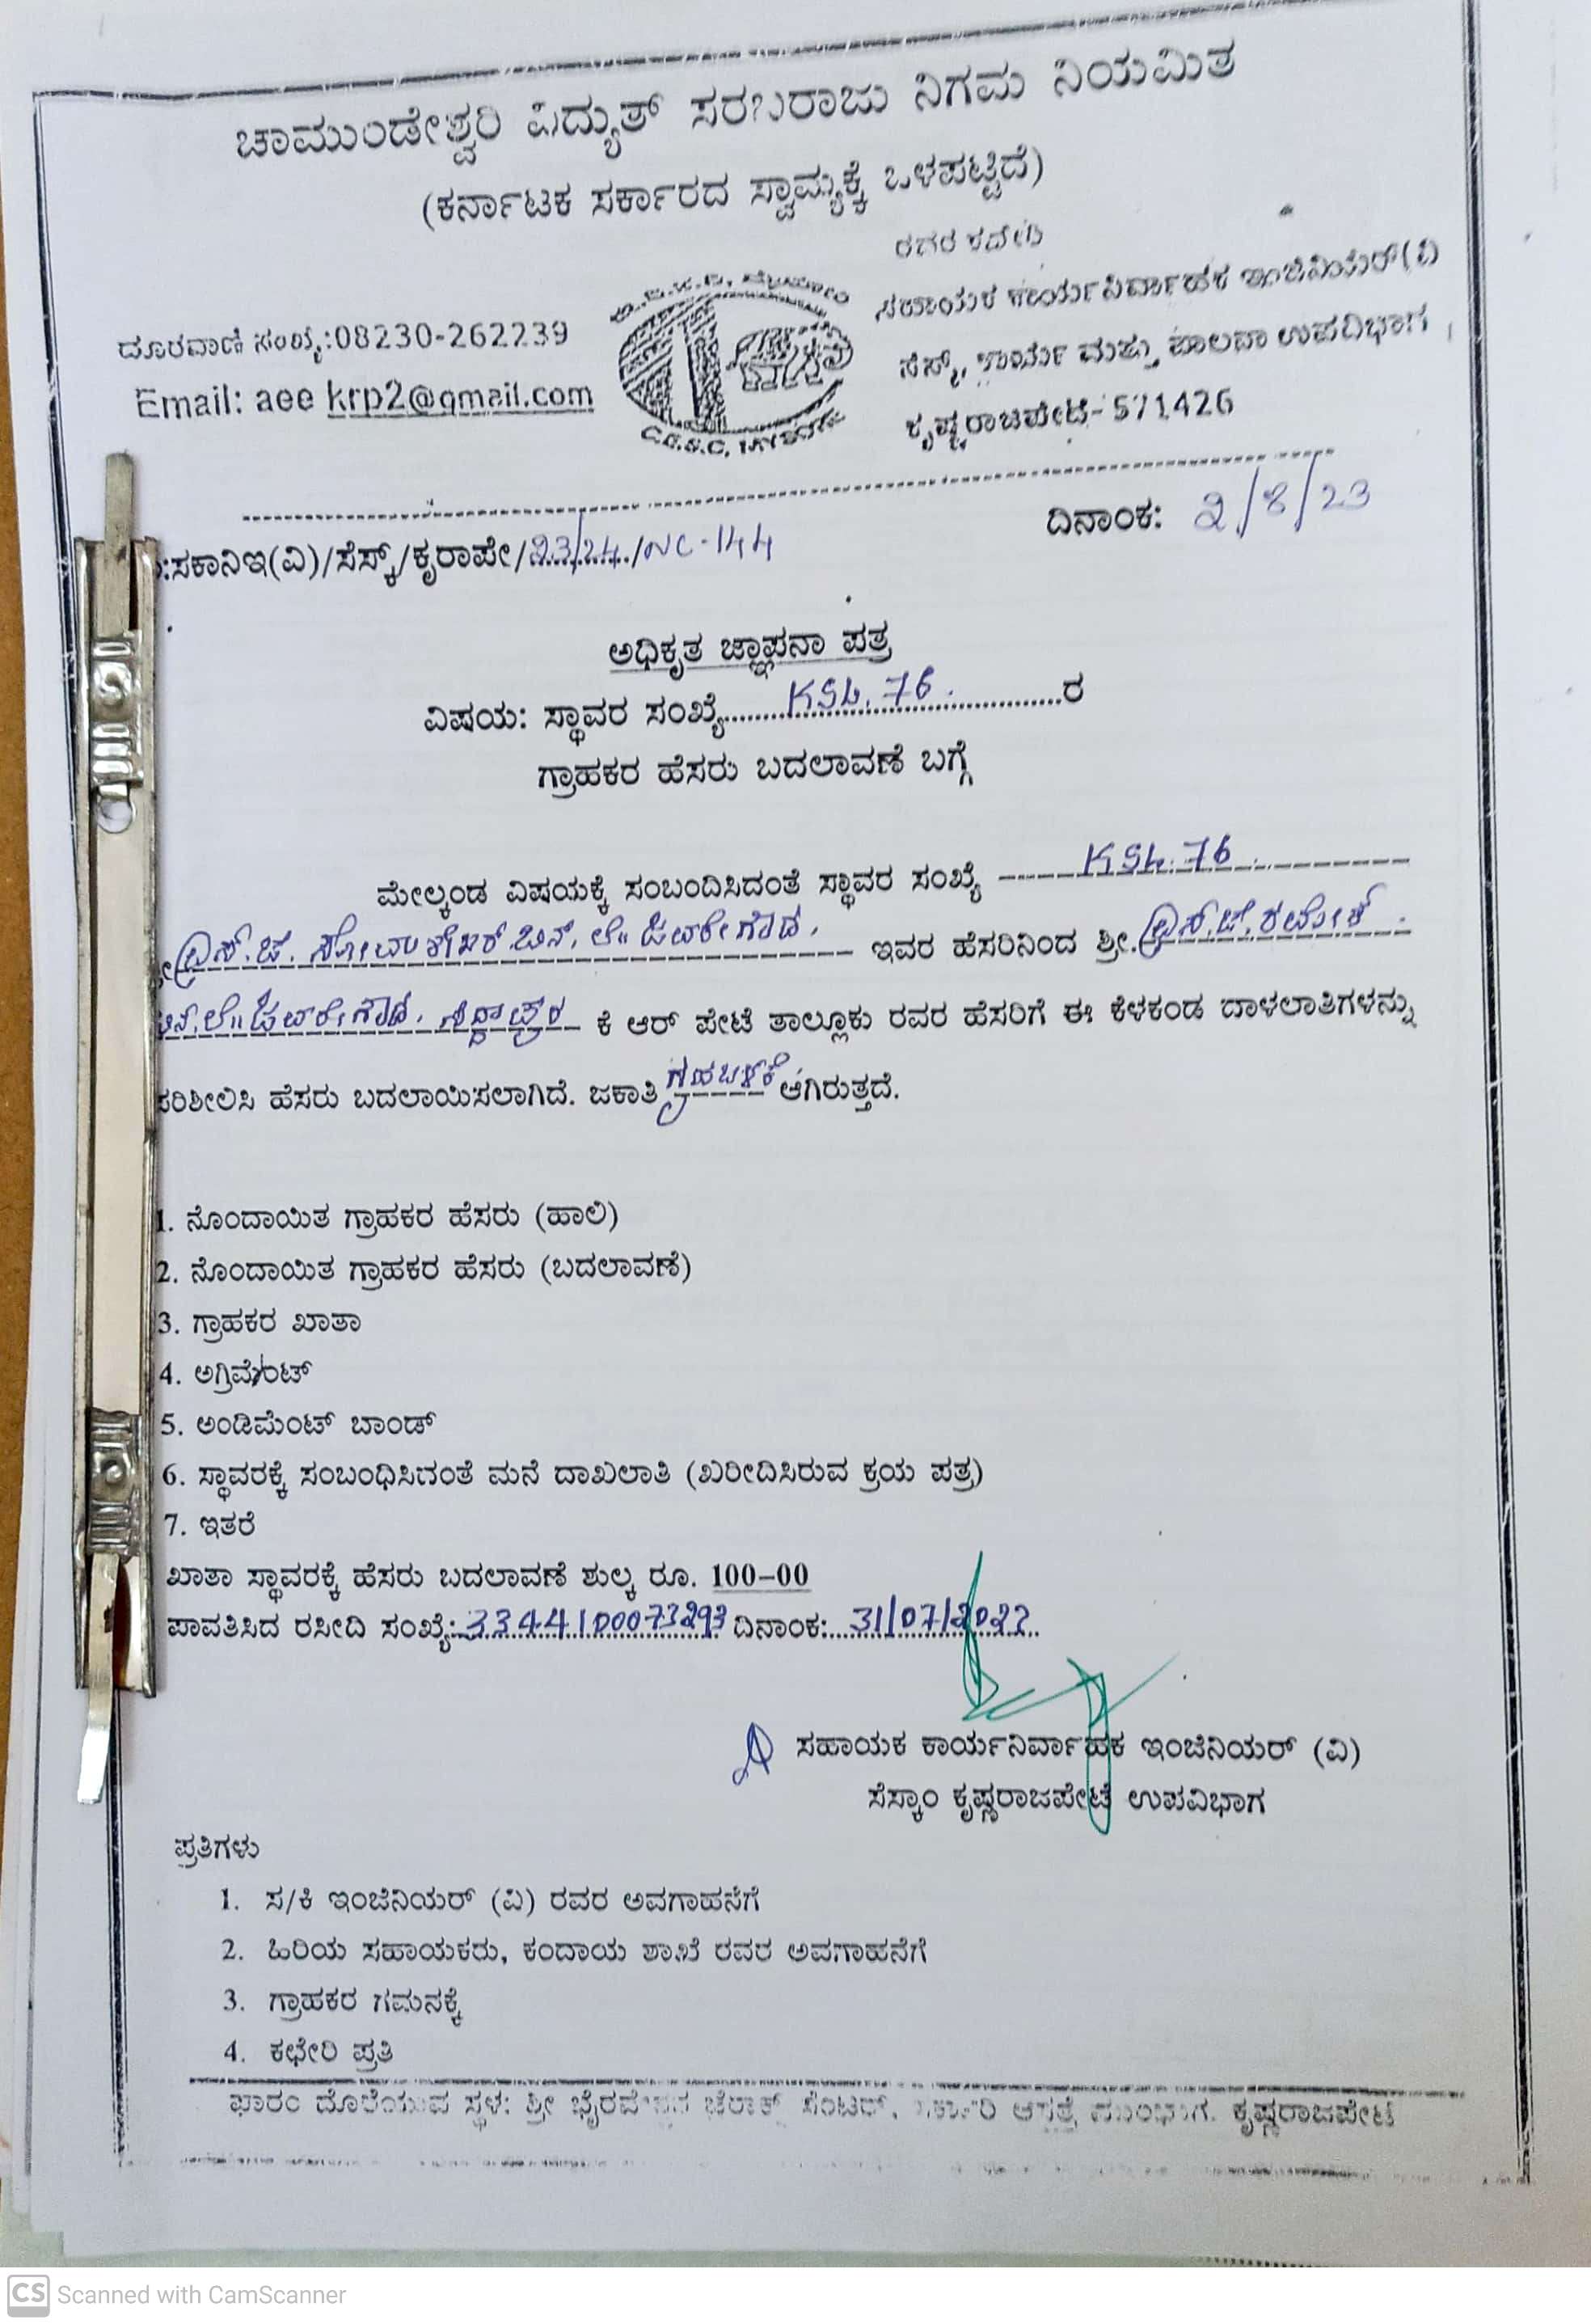 ಚಾಮುಂಡೇಶ್ವರಿ ವಿದ್ಯುತ್ ಸರಬರಾಜು ನಿಗಮ ನಿಯಮಿತ
(ಕರ್ನಾಟಕ ಸರ್ಕಾರದ ಸ್ವಾಮ್ಯಕ್ಕೆ ಒಳಪಟ್ಟಿದೆ)
ದೂರವಾಣಿ ಸಂಖ್ಯೆ:08230-262239
Email: aee krp2@gmail.com
ಸಹಾಯಕ ಕಾರ್ಯನಿರ್ವಾಹಕ ಇಂಜಿನಿಯರ್(ವಿ)
ಸೆಸ್ಕ್, ಕಾರ್ಯ ಮತ್ತು ಪಾಲನಾ ಉಪವಿಭಾಗ,
ಕೃಷ್ಣರಾಜಪೇಟೆ-571426
ದಿನಾಂಕ: 2/8/23
:ಸಕಾನಿಇ(ವಿ)/ಸೆಸ್ಕ್/ಕೃರಾಪೇ/23/24/NC-144
ಅಧಿಕೃತ ಜ್ಞಾಪನಾ ಪತ್ರ
ವಿಷಯ: ಸ್ಥಾವರ ಸಂಖ್ಯೆ KSL.76. ರ
ಗ್ರಾಹಕರ ಹೆಸರು ಬದಲಾವಣೆ ಬಗ್ಗೆ
ಮೇಲ್ಕಂಡ ವಿಷಯಕ್ಕೆ ಸಂಬಂದಿಸಿದಂತೆ ಸ್ಥಾವರ ಸಂಖ್ಯೆ KSL.76
ಎಸ್.ಜೆ. ಸೋಮಶೇಖರ್ ಬಿನ್. ಲೇ॥ ಜವರೇಗೌಡ, ಇವರ ಹೆಸರಿನಿಂದ ಶ್ರೀ.ಎಸ್.ಜೆ.ರಮೇಶ್.
ಬಿನ್.ಲೇ॥ ಜವರೇಗೌಡ. ಕೆ ಆರ್ ಪೇಟೆ ತಾಲ್ಲೂಕು ರವರ ಹೆಸರಿಗೆ ಈ ಕೆಳಕಂಡ ದಾಳಲಾತಿಗಳನ್ನು
ಪರಿಶೀಲಿಸಿ ಹೆಸರು ಬದಲಾಯಿಸಲಾಗಿದೆ. ಜಕಾತಿ ಗೃಹಬಳಕೆ ಆಗಿರುತ್ತದೆ.
1. ನೊಂದಾಯಿತ ಗ್ರಾಹಕರ ಹೆಸರು (ಹಾಲಿ)
2. ನೊಂದಾಯಿತ ಗ್ರಾಹಕರ ಹೆಸರು (ಬದಲಾವಣೆ)
3. ಗ್ರಾಹಕರ ಖಾತಾ
4. ಅಗ್ರಿಮೆಂಟ್
5. ಅಂಡಿಮೆಂಟ್ ಬಾಂಡ್
6. ಸ್ಥಾವರಕ್ಕೆ ಸಂಬಂಧಿಸಿದಂತೆ ಮನೆ ದಾಖಲಾತಿ (ಖರೀದಿಸಿರುವ ಕ್ರಯ ಪತ್ರ)
7. ಇತರೆ
ಖಾತಾ ಸ್ಥಾವರಕ್ಕೆ ಹೆಸರು ಬದಲಾವಣೆ ಶುಲ್ಕ ರೂ. 100-00
ಪಾವತಿಸಿದ ರಸೀದಿ ಸಂಖ್ಯೆ: 3344100073293 ದಿನಾಂಕ: 31/07/2022
ಸಹಾಯಕ ಕಾರ್ಯನಿರ್ವಾಹಕ ಇಂಜಿನಿಯರ್ (ವಿ)
ಸೆಸ್ಕಾಂ ಕೃಷ್ಣರಾಜಪೇಟೆ ಉಪವಿಭಾಗ
ಪ್ರತಿಗಳು
1. ಸ/ಕಿ ಇಂಜಿನಿಯರ್ (ವಿ) ರವರ ಅವಗಾಹನೆಗೆ
2. ಹಿರಿಯ ಸಹಾಯಕರು, ಕಂದಾಯ ಶಾಖೆ ರವರ ಅವಗಾಹನೆಗೆ
3. ಗ್ರಾಹಕರ ಗಮನಕ್ಕೆ
4. ಕಛೇರಿ ಪ್ರತಿ
ಫಾರಂ ದೊರೆಯುವ ಸ್ಥಳ: ಶ್ರೀ ಜೆರಾಕ್ಸ್ ಸೆಂಟರ್, ಆಸ್ಪತ್ರೆ ಮುಂಭಾಗ. ಕೃಷ್ಣರಾಜಪೇಟೆ
CS Scanned with CamScanner